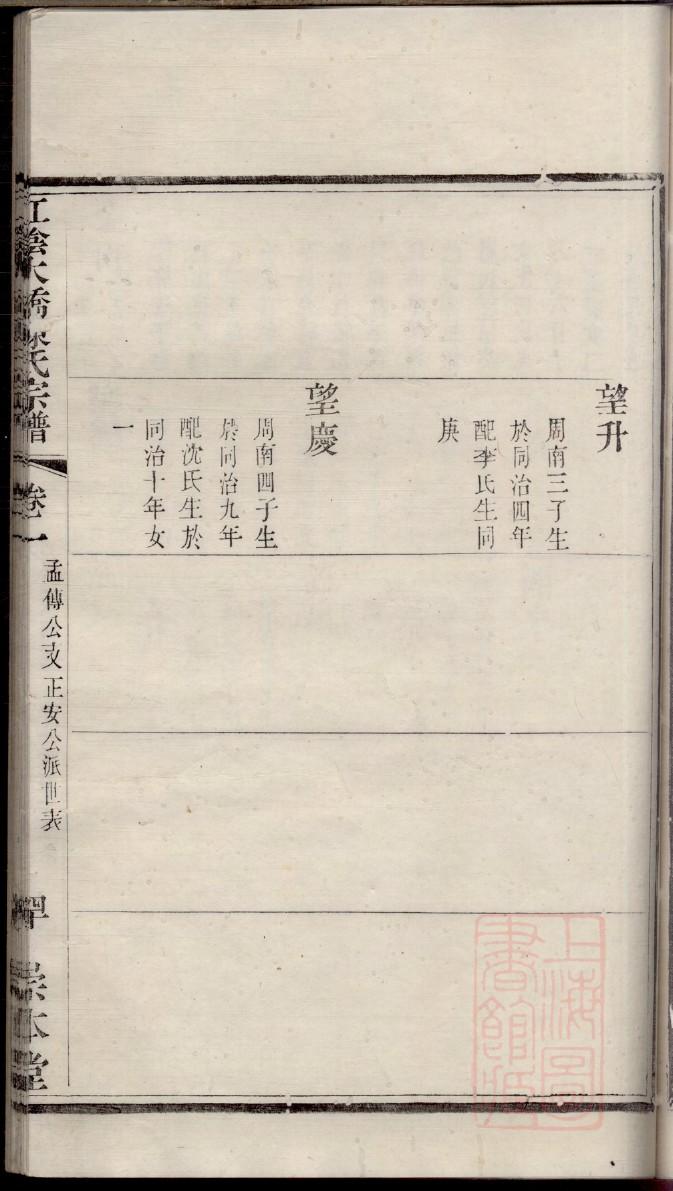 望升
周南三子生
於同治四年
配李氏生同
庚
望慶
周南四子生
於同治九年
配沈氏生於
同治十年女
一
江陰大橋梁氏宗譜
卷二
孟傳公支正安公派世表
宗本堂
上海圖
書館藏